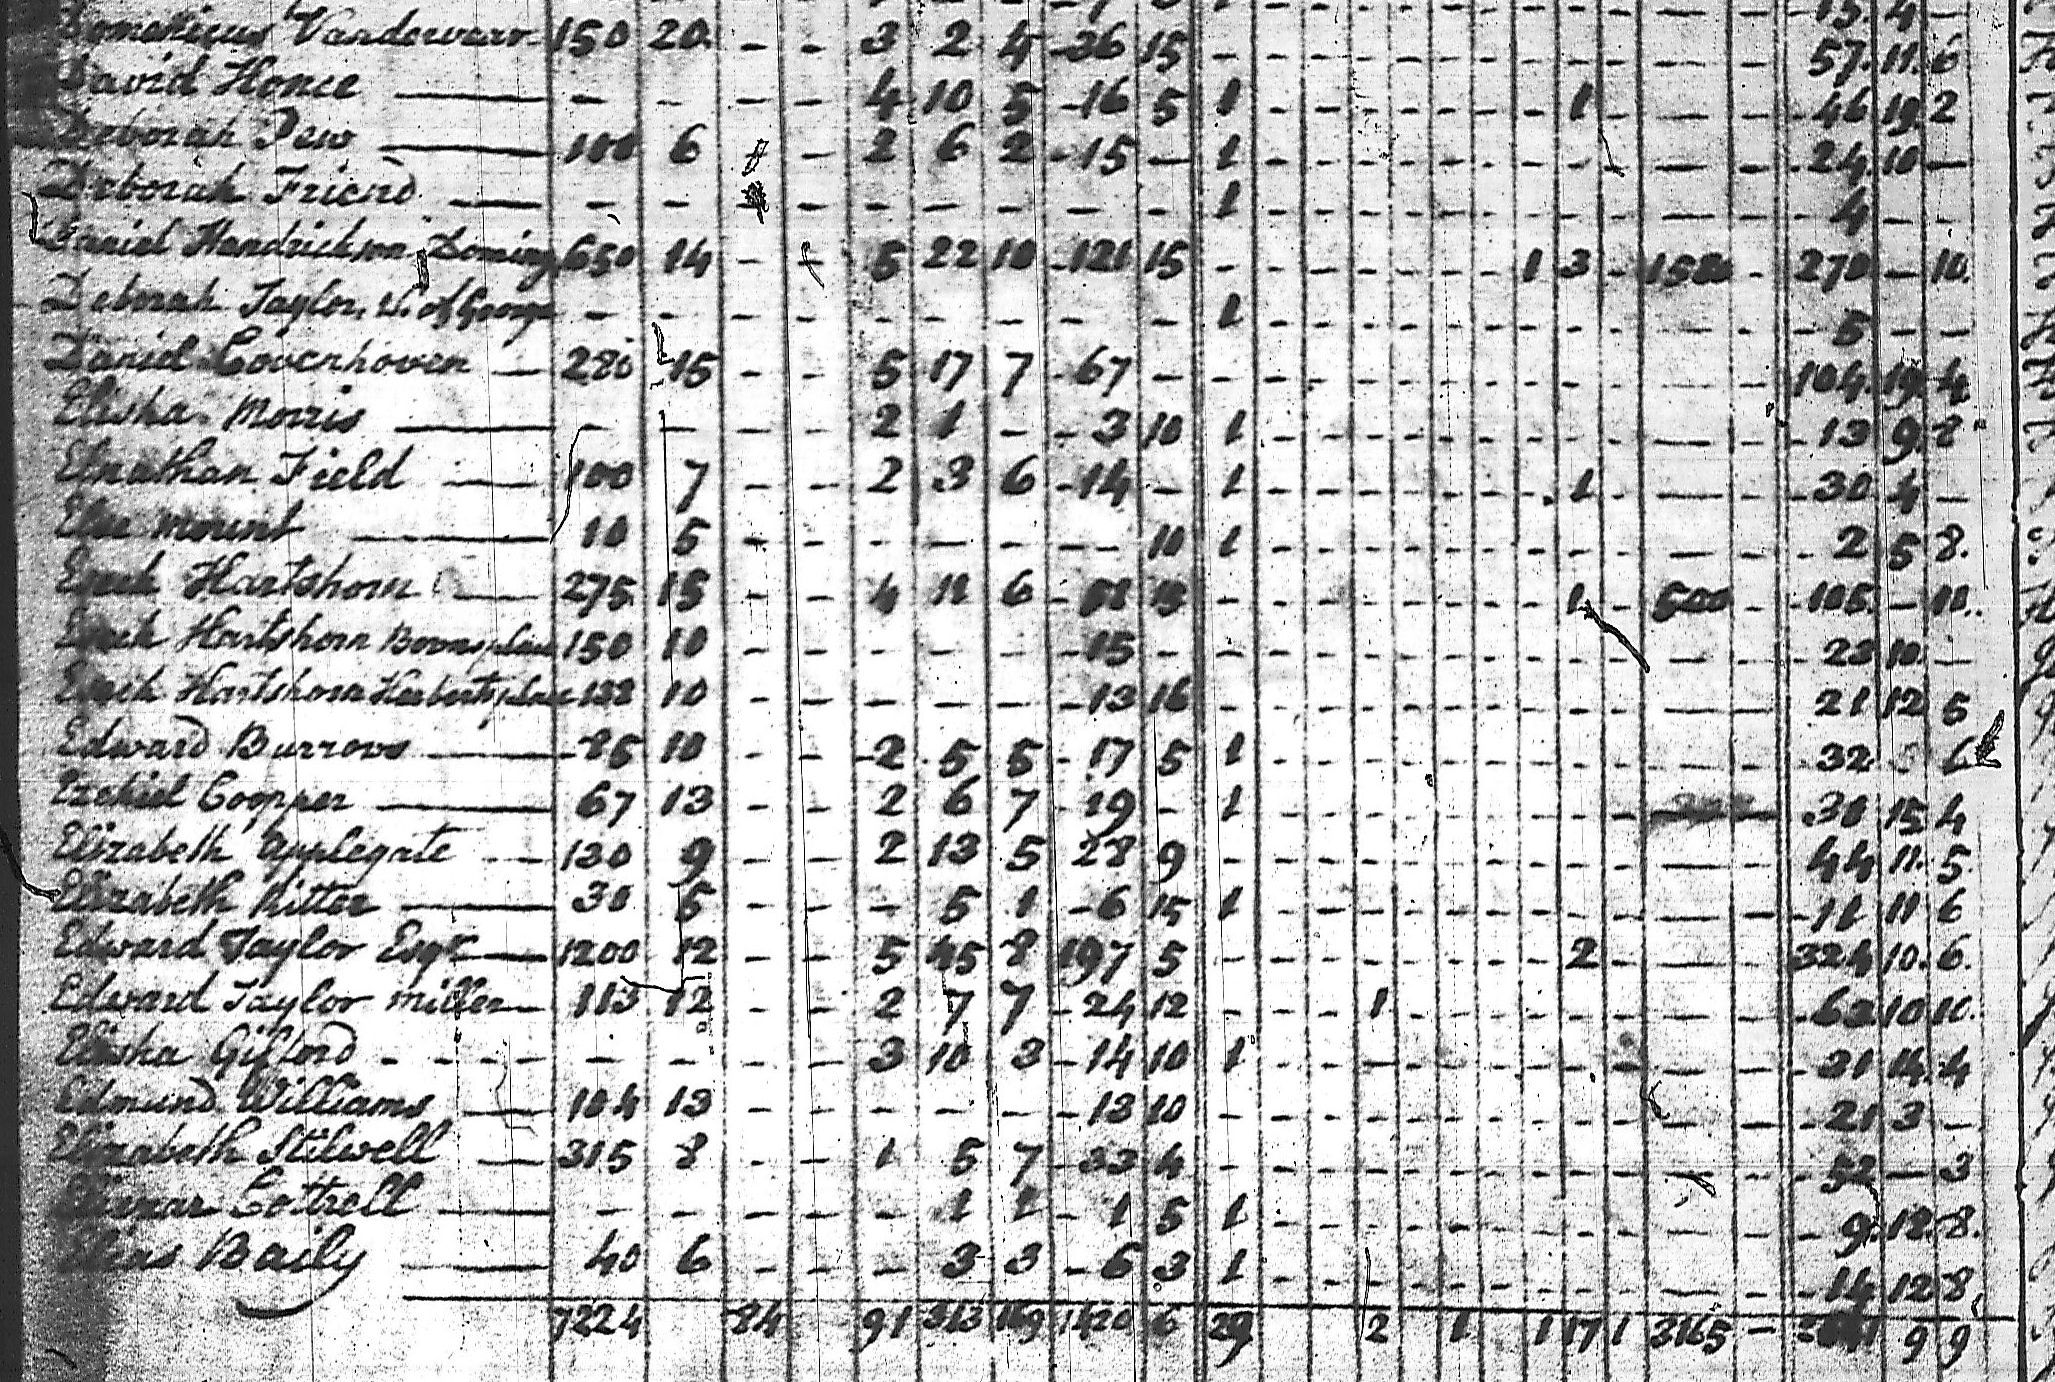 15 4 —
Vanderveer 150 20 - - 3 2 4 36 15 - - - - - - - - - — - 57 11 6
David Honce — - - - - 4 10 5 16 5 1 - - - - - - - 1 - — - 46 19 2
Deborah Pew — 100 6 - - 2 6 2 15 — 1 - - - - - - - - - — - 24 10 —
Deborah Friend — - - - - - - - - - 1 - - - - - - - - - — - 4 - -
Daniel Hendrickson 650 14 - - 5 22 10 121 15 - - - - - - - 1 3 - 1580 - 270 — 10
Deborah Taylor, W. of George - - - - - - - - - 1 - - - - - - - - - — - 5 - -
Daniel Covenhoven — 280 15 - - 5 17 7 67 — - - - - - - - - - - — - 104 19 4
Elisha Morris — - - - - 2 1 - 3 10 1 - - - - - - - - - — - 13 9 8
Elnathan Field — 100 7 - - 2 3 6 14 - 1 - - - - - - - 1 - — - 30 4 —
Mount — 10 5 - - - - - — 10 1 - - - - - - - - - — - 2 5 8
Hartshorn — 275 15 - - 4 11 6 - - - - - - - - 1 - 500 - 105 - 10
Hartshorn 150 10 - - - - - 15 - - - - - - - - - - - — - 10 —
Hartshorn Herberts place 10 - - - - - 13 16 - - - - - - - - - - — - 21 12 5
Edward Burrows — 85 10 - - 2 5 5 17 5 1 - - - - - - - - - — - 32 6
Ezekiel Coopper — 67 13 - - 2 6 7 19 - 1 - - - - - - - - - 15 4
Elizabeth Applegate — 130 9 - - 2 13 5 28 9 - - - - - - - - - - — - 44 11 5
Elizabeth Ritter — 30 5 - - - 5 1 6 15 1 - - - - - - - - - — - 11 11 6
Edward Taylor Esqr — 1200 12 - - 5 45 8 197 5 - - - - - - - - 2 - — - 324 10 6
Edward Taylor miller — 113 12 - - 2 7 7 24 12 - - - - 1 - - - - - — - 10 10
Elisha Gifford - - - - - - - 3 10 3 14 10 1 - - - - - - - - - — - 14 4
Edmund Williams — 104 13 - - - - — 13 10 - - - - - - - - - - — - 21 3 —
Elizabeth Stilwell — 315 8 - - 1 5 7 33 4 - - - - - - - - - - — - 52 — 3
Cottrell — - - - - - 1 1 1 5 1 - - - - - - - - - — - 9 12 8
Baily — 40 6 - - - 3 3 6 3 1 - - - - - - - - - — - 14 12 8
7224 84 91 343 169 1420 6 29 2 1 1 17 1 3165 - 9 9